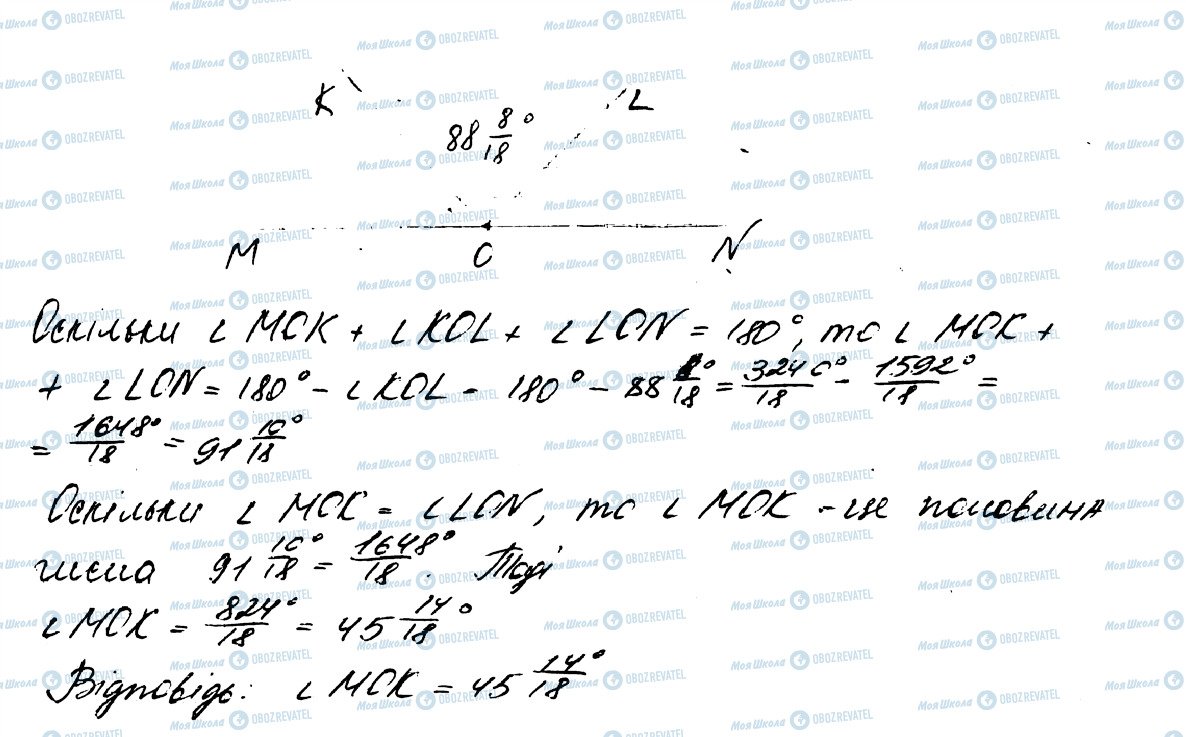 K L
88 8/18 °
M O N
Оскільки ∠ MOK + ∠ KOL + ∠ LON = 180°, то ∠ MOK +
+ ∠ LON = 180° - ∠ KOL = 180° - 88 8/18 ° = 3240/18 ° - 1592/18 ° =
= 1648/18 ° = 91 10/18 °
Оскільки ∠ MOK = ∠ LON, то ∠ MOK - це половина
числа 91 10/18 ° = 1648/18 °. Тоді
∠ MOK = 824/18 ° = 45 14/18 °
Відповідь: ∠ MOK = 45 14/18 °
Моя Школа OBOZREVATEL